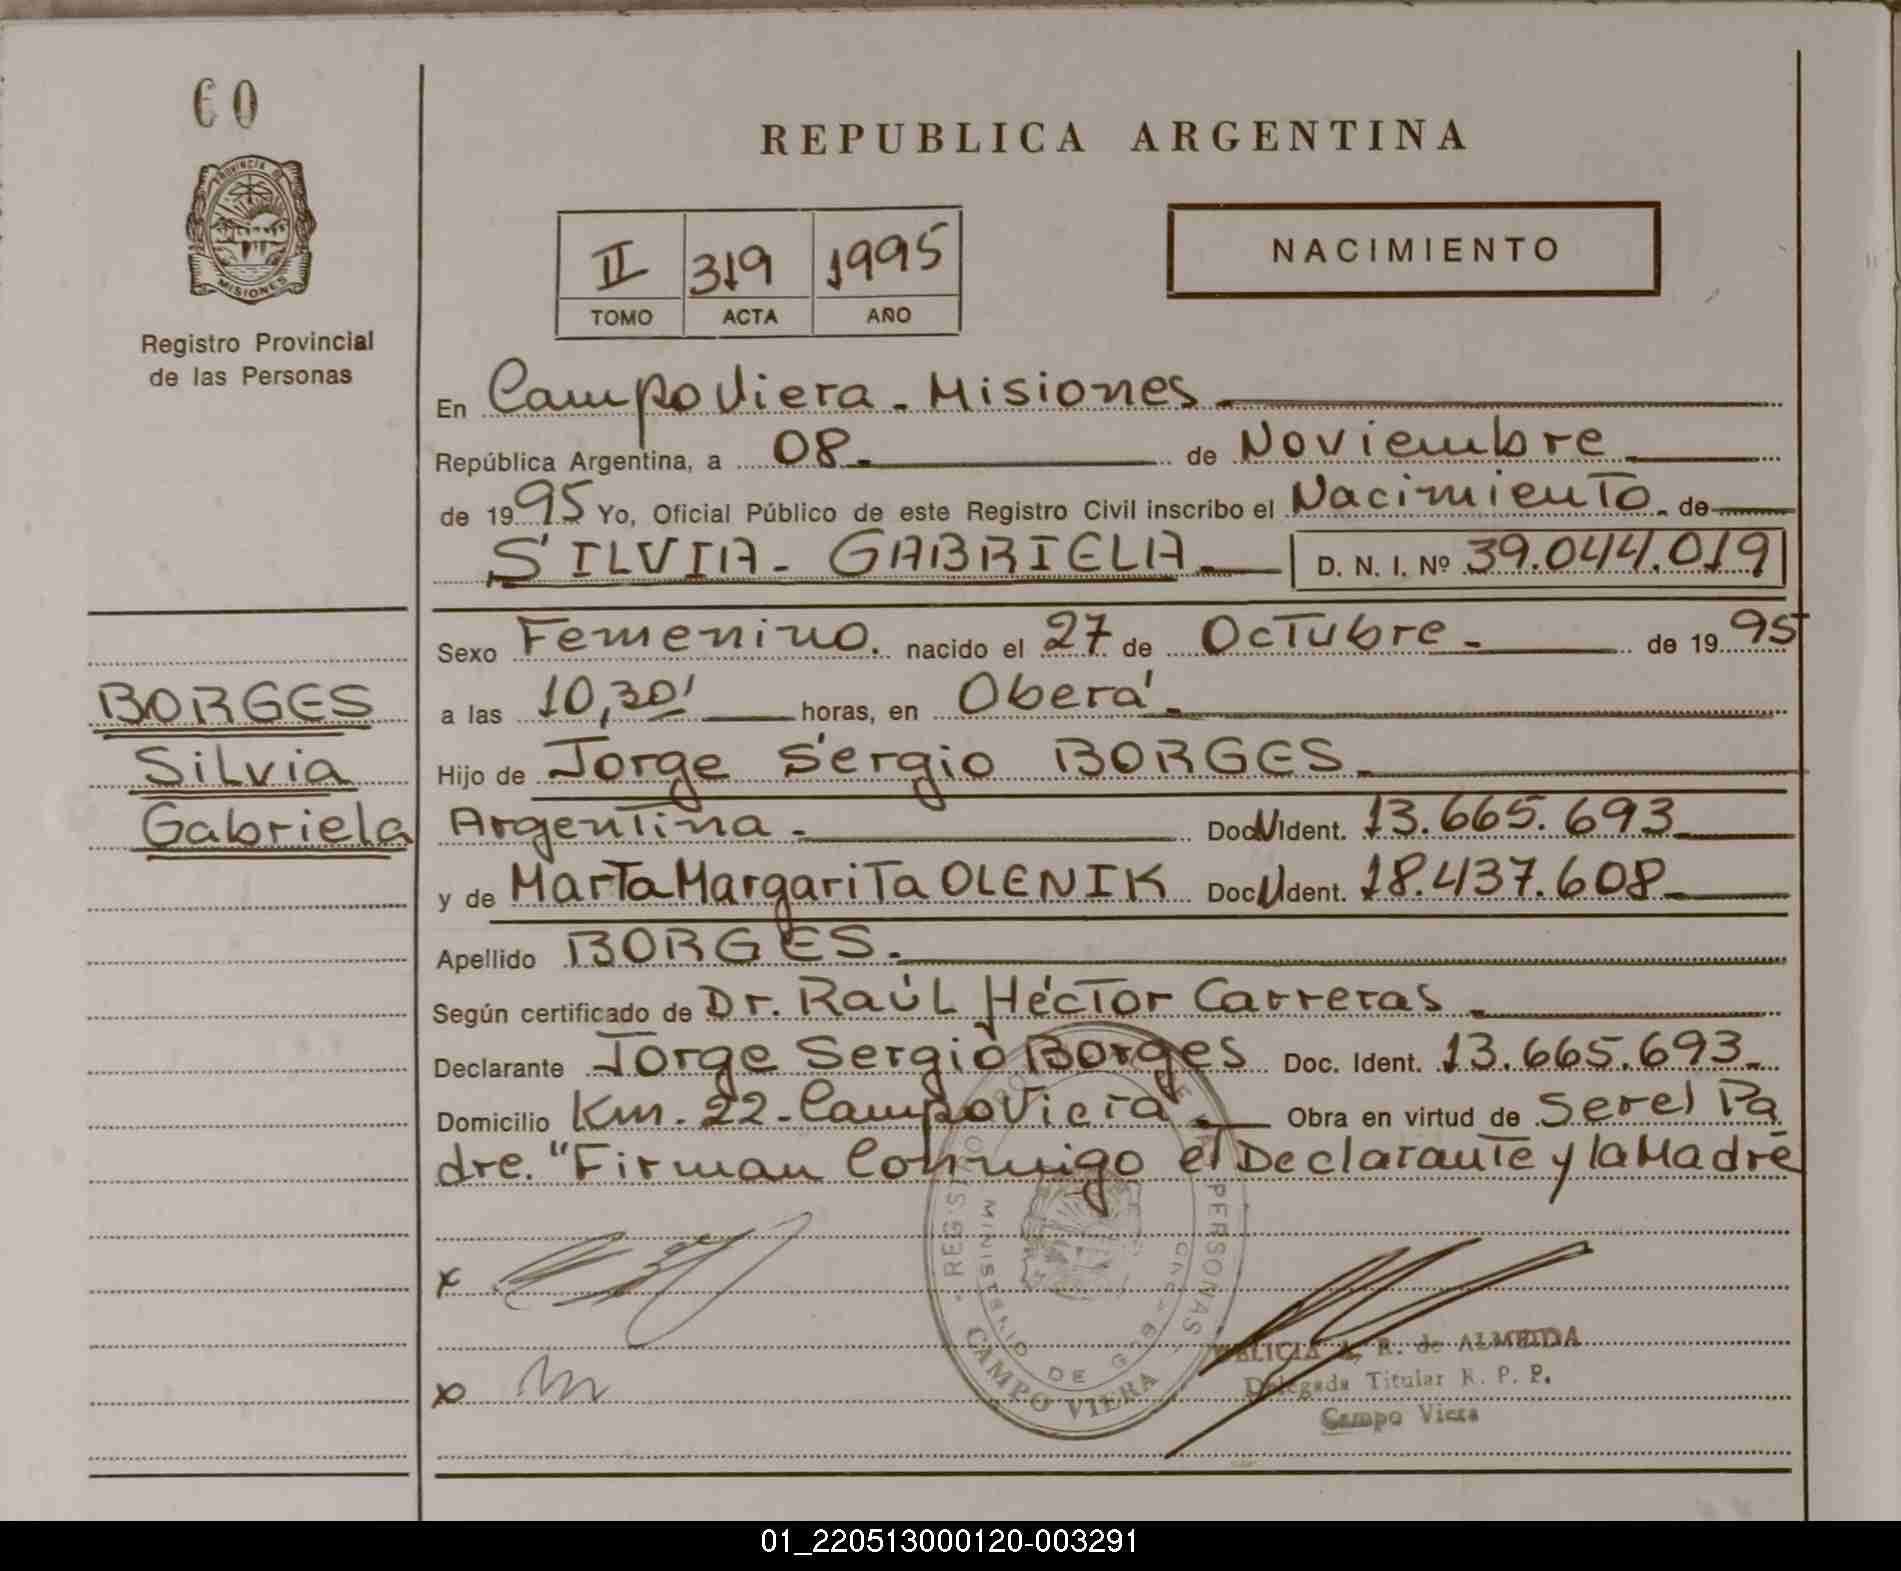 60
PROVINCIA DE
MISIONES
Registro Provincial
de las Personas
REPUBLICA ARGENTINA
II 319 1995
TOMO ACTA AÑO
NACIMIENTO
En Campo Viera - Misiones
República Argentina, a 08 de Noviembre
de 1995 Yo, Oficial Público de este Registro Civil inscribo el Nacimiento de
SILVIA - GABRIELA D. N. I. Nº 39.044.019
Sexo Femenino. nacido el 27 de Octubre - de 1995
a las 10,30' horas, en Oberá
Hijo de Jorge Sergio BORGES
Argentina - Doc. Ident. 13.665.693
y de Marta Margarita OLENIK Doc. Ident. 18.437.608
Apellido BORGES.
Según certificado de Dr. Raúl Héctor Carreras
Declarante Jorge Sergio Borges Doc. Ident. 13.665.693
Domicilio Km. 22 - Campo Viera Obra en virtud de Ser el Pa
dre. "Firman Conmigo el Declarante y la Madre
BORGES
Silvia
Gabriela
x
x
REGISTRO PERSONAS
MINISTERIO DE
CAMPO VIERA
R. de ALMEIDA
Delegada Titular R. P. P.
Campo Viera
01_220513000120-003291